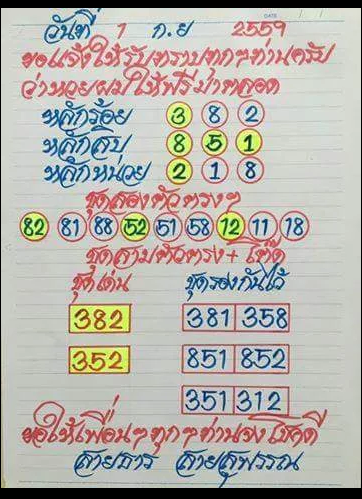 วันที่ 1 ก.ย 2559
ขอแจ้งให้รับทราบทุกๆท่านครับ
ว่าหวยผมให้ฟรีมาตลอด
หลักร้อย 3 8 2
หลักสิบ 8 5 1
หลักหน่วย 2 1 8
ชุดสองตัวตรงๆ
82 81 88 52 51 58 12 11 18
ชุดสามตัวตรง+โต๊ด
ชุดเด่น ชุดรองกันไว้
382 381 358
352 851 852
351 312
ขอให้เพื่อนๆทุกๆท่านจงโชคดี
สายธาร สายสุพรรณ